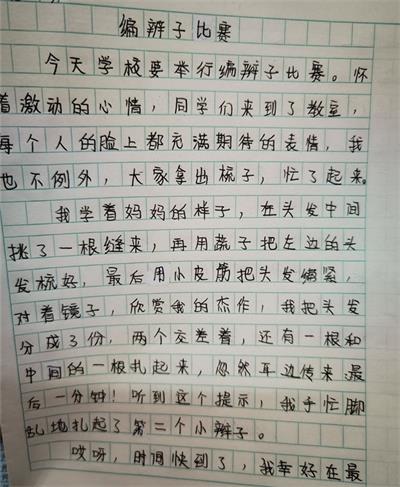 编辫子比赛
今天学校要举行编辫子比赛。怀
着激动的心情，同学们来到了教室，
每个人的脸上都充满期待的表情，我
也不例外，大家拿出梳子，忙了起来。
我学着妈妈的样子，在头发中间
挑了一根缝来，再用梳子把左边的头
发梳好，最后用小皮筋把头发绑紧，
对着镜子，欣赏我的杰作，我把头发
分成3份，两个交差着，还有一根和
中间的一根扎起来，忽然耳边传来最
后一分钟！听到这个提示，我手忙脚
乱地扎起了第二个小辫子。
哎呀，时间快到了，我幸好在最